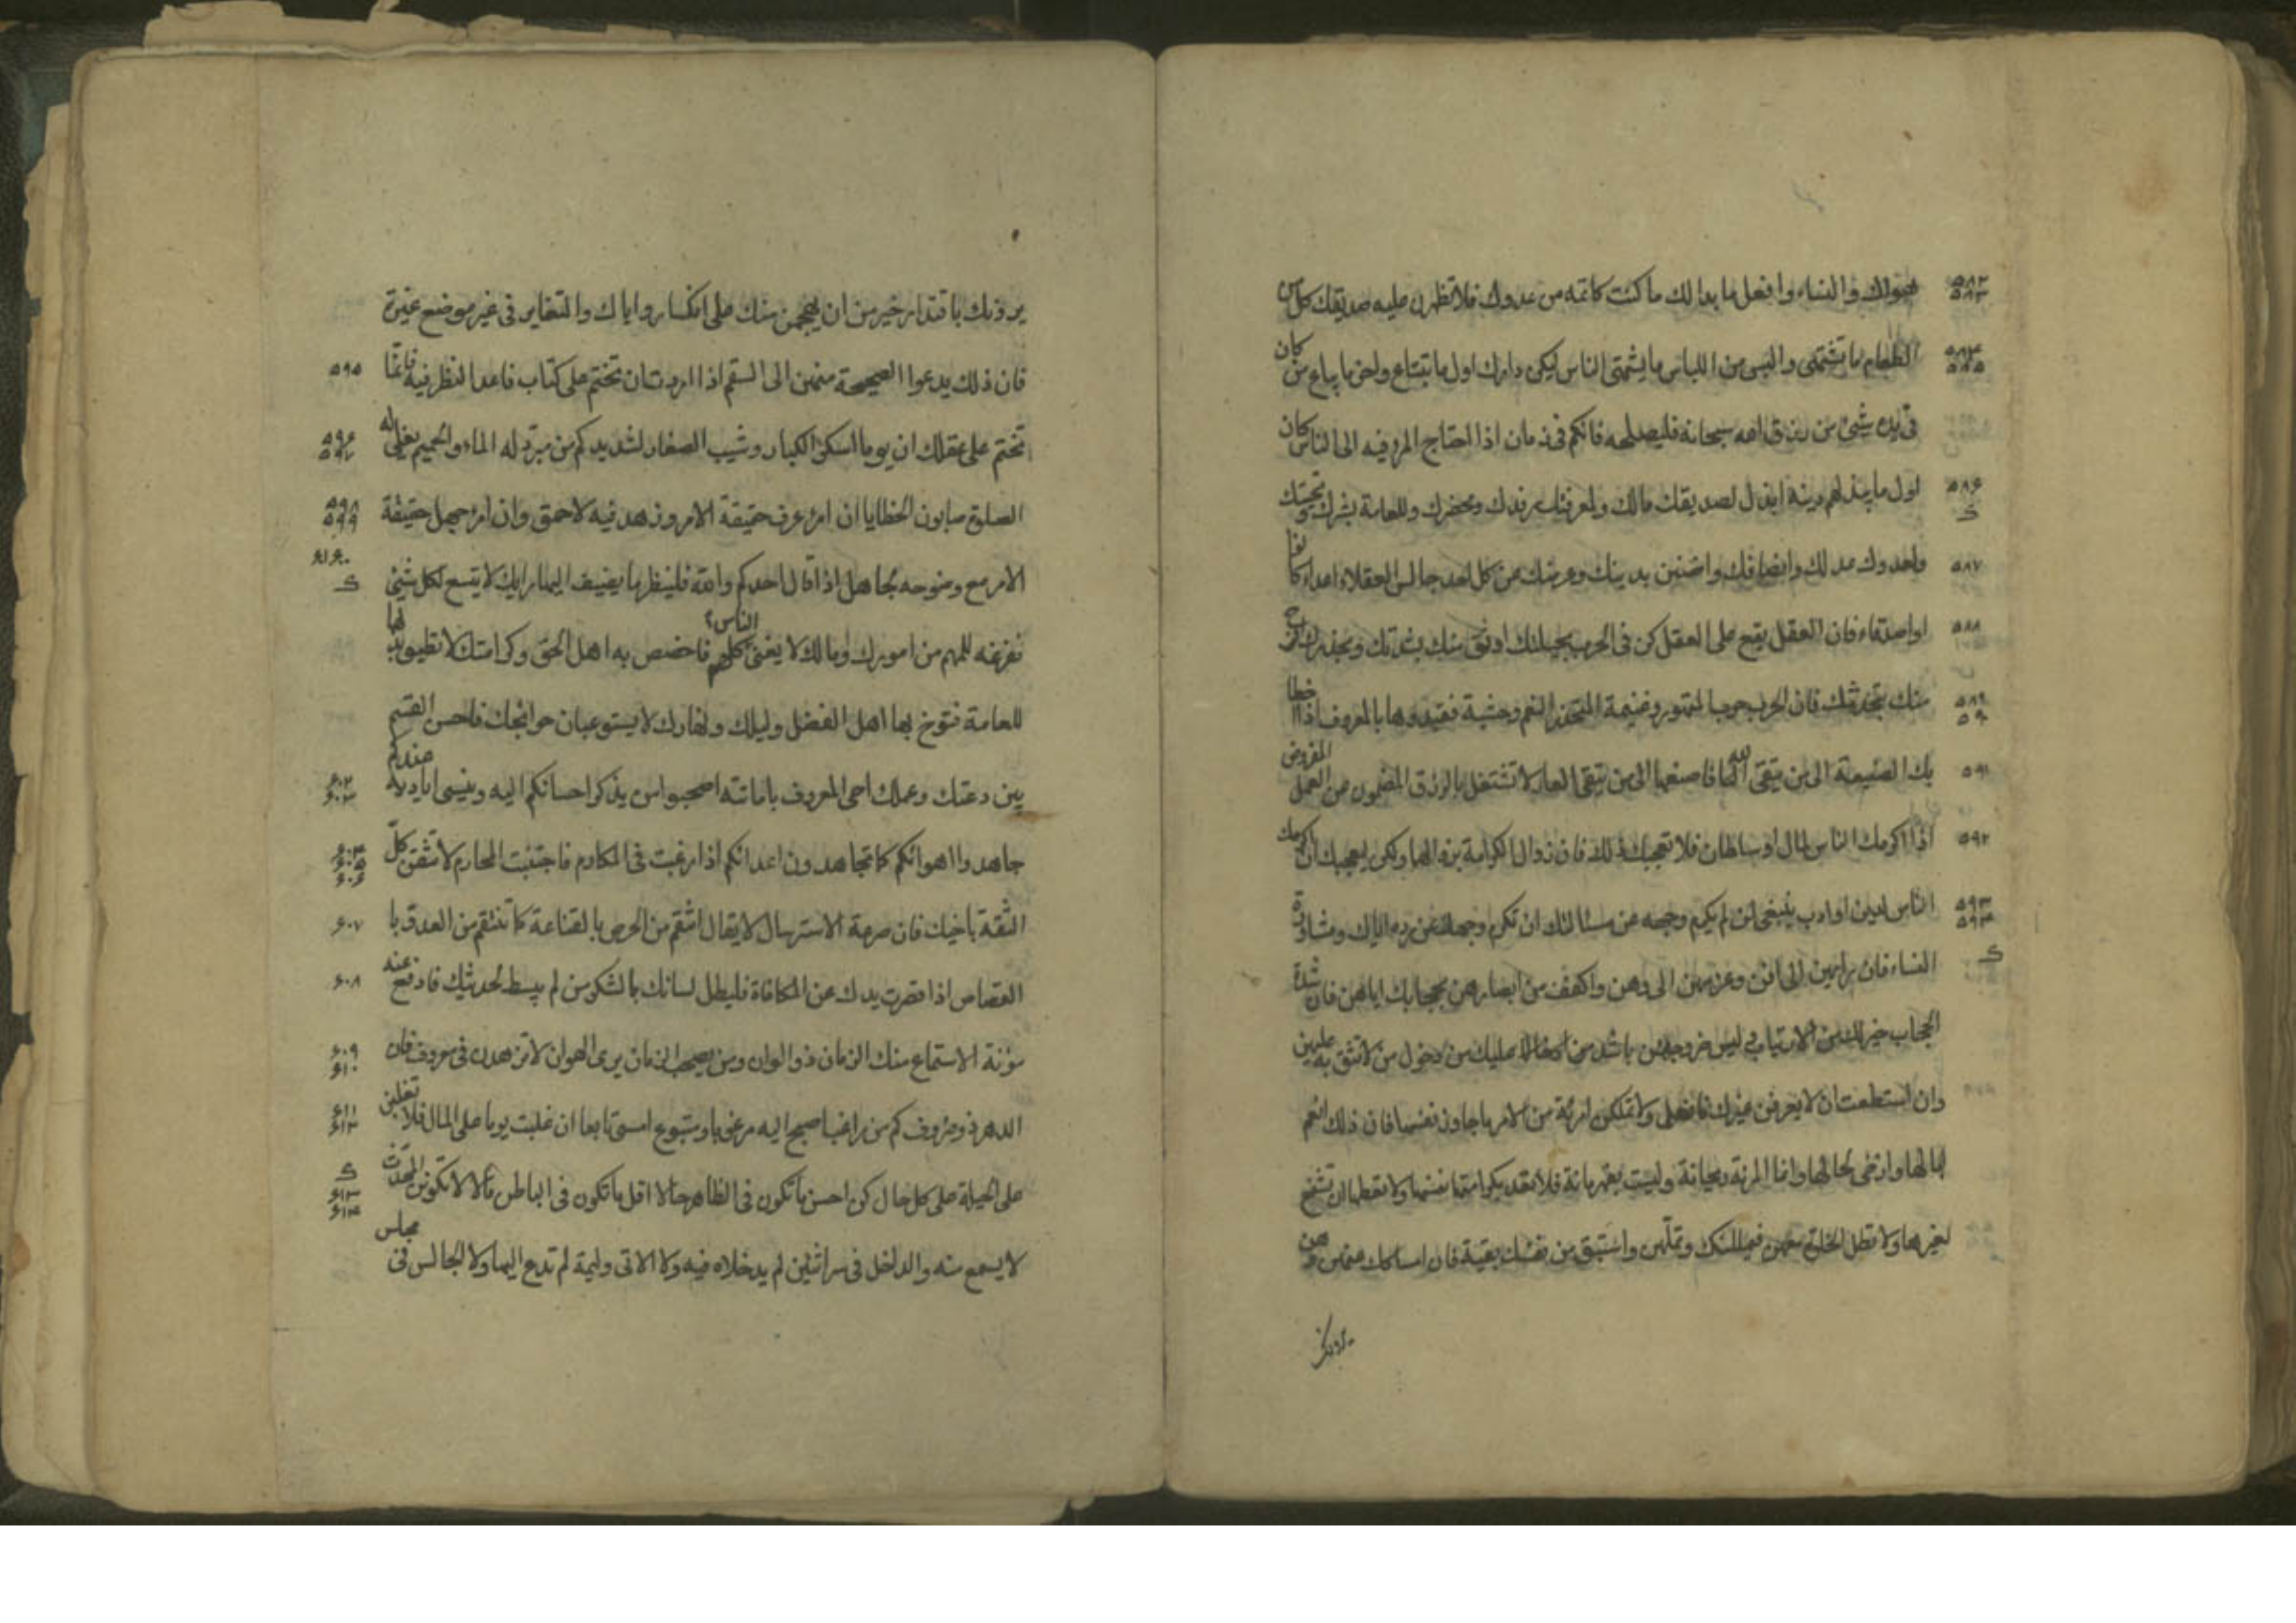 والنساء وافعل ما بدا لك ما كنت كاتمه من عدوك فلا تظهرن عليه صديقك كل من
الطعام ما تشتهى والبس من اللباس ما يشتهى الناس ليكن دارك اول ما تبتاع واخر ما يباع من كان
فى يده شيئ من رزق الله سبحانه فليصلحه فانكم فى زمان اذا احتاج المرء فيه الى الناس كان
اول ما يبذلهم دينه ابذل لصديقك مالك ولمعرفتك رفدك ومحضرك وللعامة بشرك وتحيتك
ولعدوك عدلك وانصافك واضنن بدينك وعرضك عن كل احد جالس العقلاء اعداء كانوا
او اصدقاء فان العقل يقع على العقل كن فى الحرب بحيلتك اوثق منك بشدتك وبحذرك افرح
منك بنجدتك فان الحرب حرب المتهور وغنيمة المتحذر النعم وحشية فقيدوها بالمعروف اذا اخطا
بك الصنيعة الى من يتقى الله فاصنعها الى من يتقى العار لا تشتغل بالرزق المضمون عن العمل المفروض
اذا اكرمك الناس لمال او سلطان فلا تعجبك ذلك فان زوال الكرامة بزوالهما ولكن ليعجبك ان اكرمك
الناس لدين او ادب ينبغى لمن لم يكرم وجهه عن مسئالتك ان تكرم وجهك عن رده اياك ومشاورة
النساء فان رايهن الى افن وعزمهن الى وهن واكفف من ابصارهن بحجابك اياهن فان شدة
الحجاب خير لك من الارتياب وليس خروجهن باشد من ادخالك عليك من دخول من لا تثق به عليهن
وان استطعت ان لا يعرفن غيرك فافعل ولا تملكن امرئة من الامر ما جاوز نفسها فان ذلك انعم
لبالها وارخى لحالها وانما المرئة ريحانة وليست بقهرمانة فلا تعد بكرامتها نفسها ولا تعطها ان تشفع
لغيرها ولا تطل الخلوة معهن فيمللنك وتملهن واستبق من نفسك بقية فان امساكك عنهن وهن
يردنك
يردنك باقتدار خير من ان يهجمن منك على انكسار واياك والتغاير فى غير موضع غيرة
فان ذلك يدعوا الصحيحة منهن الى السقم اذا اردت ان تختم على كتاب فاعد النظر فيه فانما ٥٩٥
تختم على عقلك ان يوما اسكر الكبار وشيب الصغار لشديد كم من مبرد له الماء والحميم يغلى له ٥٩٦ ٥٩٧
الصلوة صابون الخطايا ان امرء عرف حقيقة الامر وزهد فيه لاحمق وان امرء جهل حقيقة ٥٩٨ ٥٩٩
الامر مع وضوحه لجاهل اذا قال احدكم والله فلينظر ما يضيف اليها رايك لا يتسع لكل شيئ
ففرغه للمهم من امورك ومالك لا يغنى الناس كلهم فاخصص به اهل الحق وكرامتك لا تطيق بذلها
للعامة فتوخ بها اهل الفضل وليلك ونهارك لا يستوعبان حوائجك فاحسن القسم
بين دعتك وعملك احى المعروف باماتته اصحبوا من يذكر احسانكم اليه وينسى اياديه عندكم ٦٠٢ ٦٠٣
جاهدوا اهوائكم كما تجاهدون اعدائكم اذا رغبت فى المكارم فاجتنب المحارم لا تثقن كل ٦٠٤ ٦٠٥ ٦٠٦
الثقة باخيك فان صرعة الاسترسال لا يقال انتقم من الحرص بالقناعة كما تنتقم من العدو با ٦٠٧
القصاص اذا قصرت يدك عن المكافاة فليطل لسانك بالشكر من لم ينشط لحديثك فارفع عنه ٦٠٨
مؤنة الاستماع منك الزمان ذو الوان ومن يصحب الزمان يرى الهوان لا تزهدن فى معروف فان ٦٠٩ ٦١٠
الدهر ذو صروف كم من راغب اصبح اليه مرغوبا ومتبوع امسى تابعا ان غلبت يوما على المال فلا تغلبن ٦١١ ٦١٢
على الحيلة على كل حال كن احسن ما تكون فى الظاهر حالا اقل ما تكون فى الباطن مالا لا تكونن المحدث ٦١٣ ٦١٤
لا يسمع منه والداخل فى سر اثنين لم يدخلاه فيه ولا الاتى وليمة لم تدع اليها ولا الجالس فى مجلس